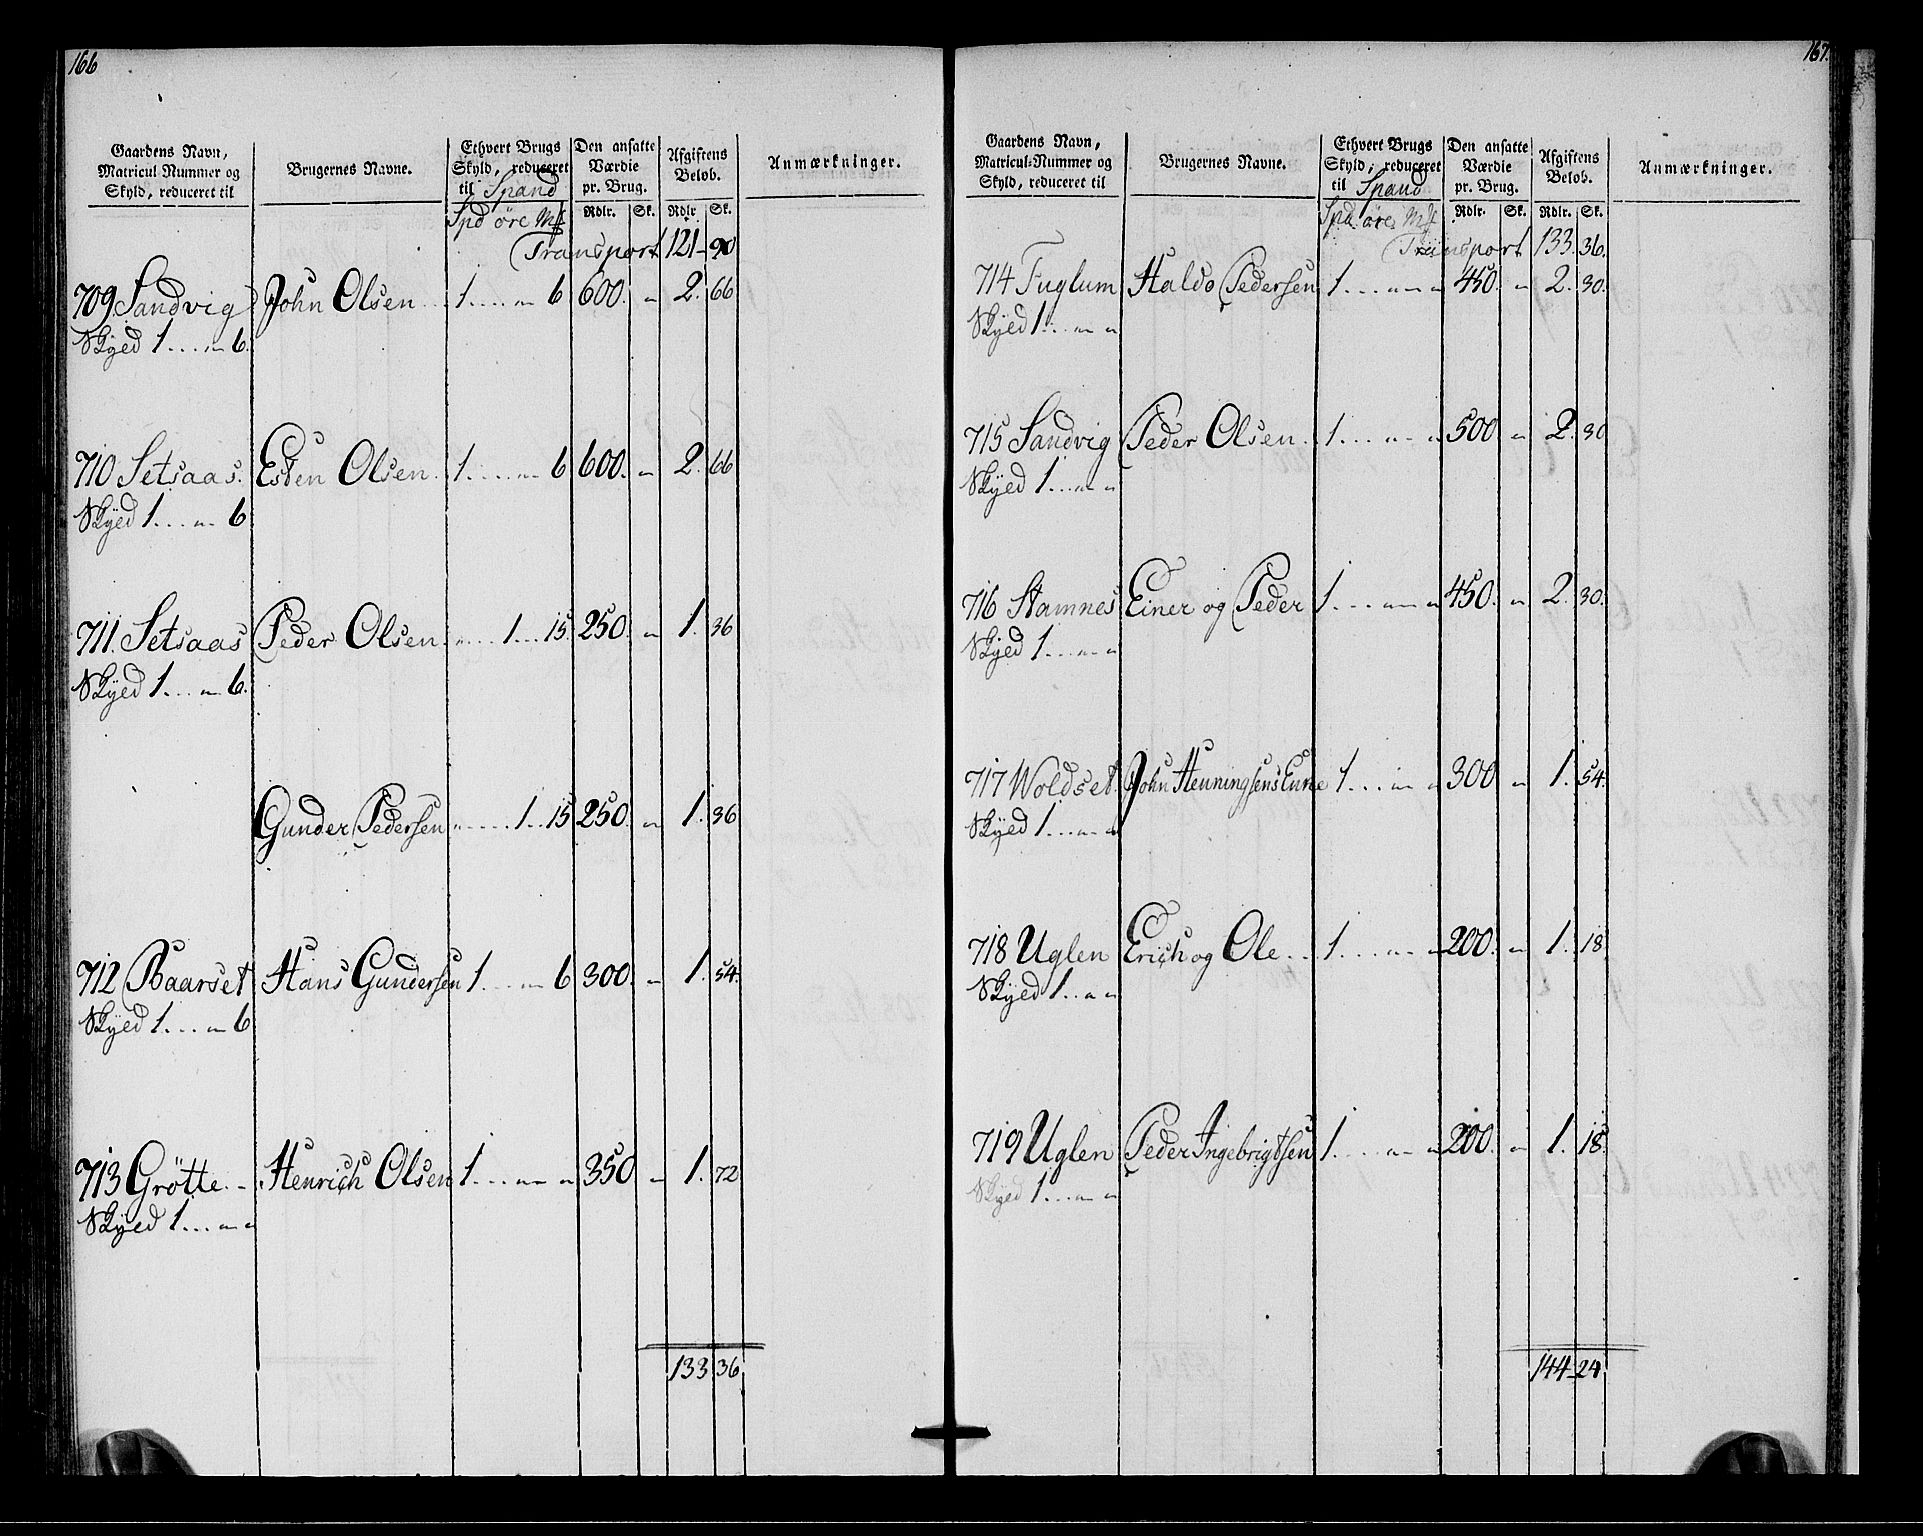 166
Gaardens Navn, Matricul Nummer og Skyld, reduceret til | Brugernes Navne. | Ethvert Brugs Skyld, reduceret til Spand | Den ansatte Værdie pr. Brug. | Afgiftens Beløb. | Anmærkninger.
Spd øre Mk | Rdlr. | Sk. | Rdlr | Sk.
Transport 121 - 90
709 Sandvig John Olsen 1 .... „ 6 600. „ 2. 66
Skyed 1 ... „ 6.
710 Setsaas. Esten Olsen. 1 .... „ 6 600. „ 2. 66
Skyed 1 ... „ 6
711. Setsaas Peder Olsen. „ .... 1 ... 15. 250. „ 1. 36
Skyed 1 ... „ 6.
Gunder Pedersen „ .... 1 .. 15 250. „ 1. 36
712 Baarset Hans Gundersen 1 .... „ 6 300. „ 1. 54.
Skyed 1 ... „ 6
713 Grötte Henrich Olsen 1 ... „ „ 350 „ 1. 72
Skyed 1 ... „ „
133 36
167.
Gaardens Navn, Matricul-Nummer og Skyld, reduceret til | Brugernes Navne. | Ethvert Brugs Skyld, reduceret til Spand | Den ansatte Værdie pr. Brug. | Afgiftens Beløb. | Anmærkninger.
Spd. øre Mk | Rdlr. | Sk. | Rdlr. | Sk.
Transport 133. 36.
714 Fuglum Haldo Pedersen 1 ... „ „ 450. „ 2. 30.
Skyed 1 ... „ „
715 Sandvig Peder Olsen. 1 ... „ „ 500 „ 2. 30
Skyed 1 ... „ „
716 Stamnes Einer og Peder 1 ... „ „ 450. „ 2. 30.
Skyed 1 ... „ „
717 Woldset. John Henningsens Enne 1 ... „ „ 300 „ 1. 54.
Skyed 1 ... „ „
718 Uglen Erich og Ole 1 ... „ „ 200. „ 1. 18
Skyed 1 .. „ „
719 Uglen Peder Ingebrigtsen 1 ... „ „ 200. „ 1. 18.
Skyed 1 ... „ „
144 - 24